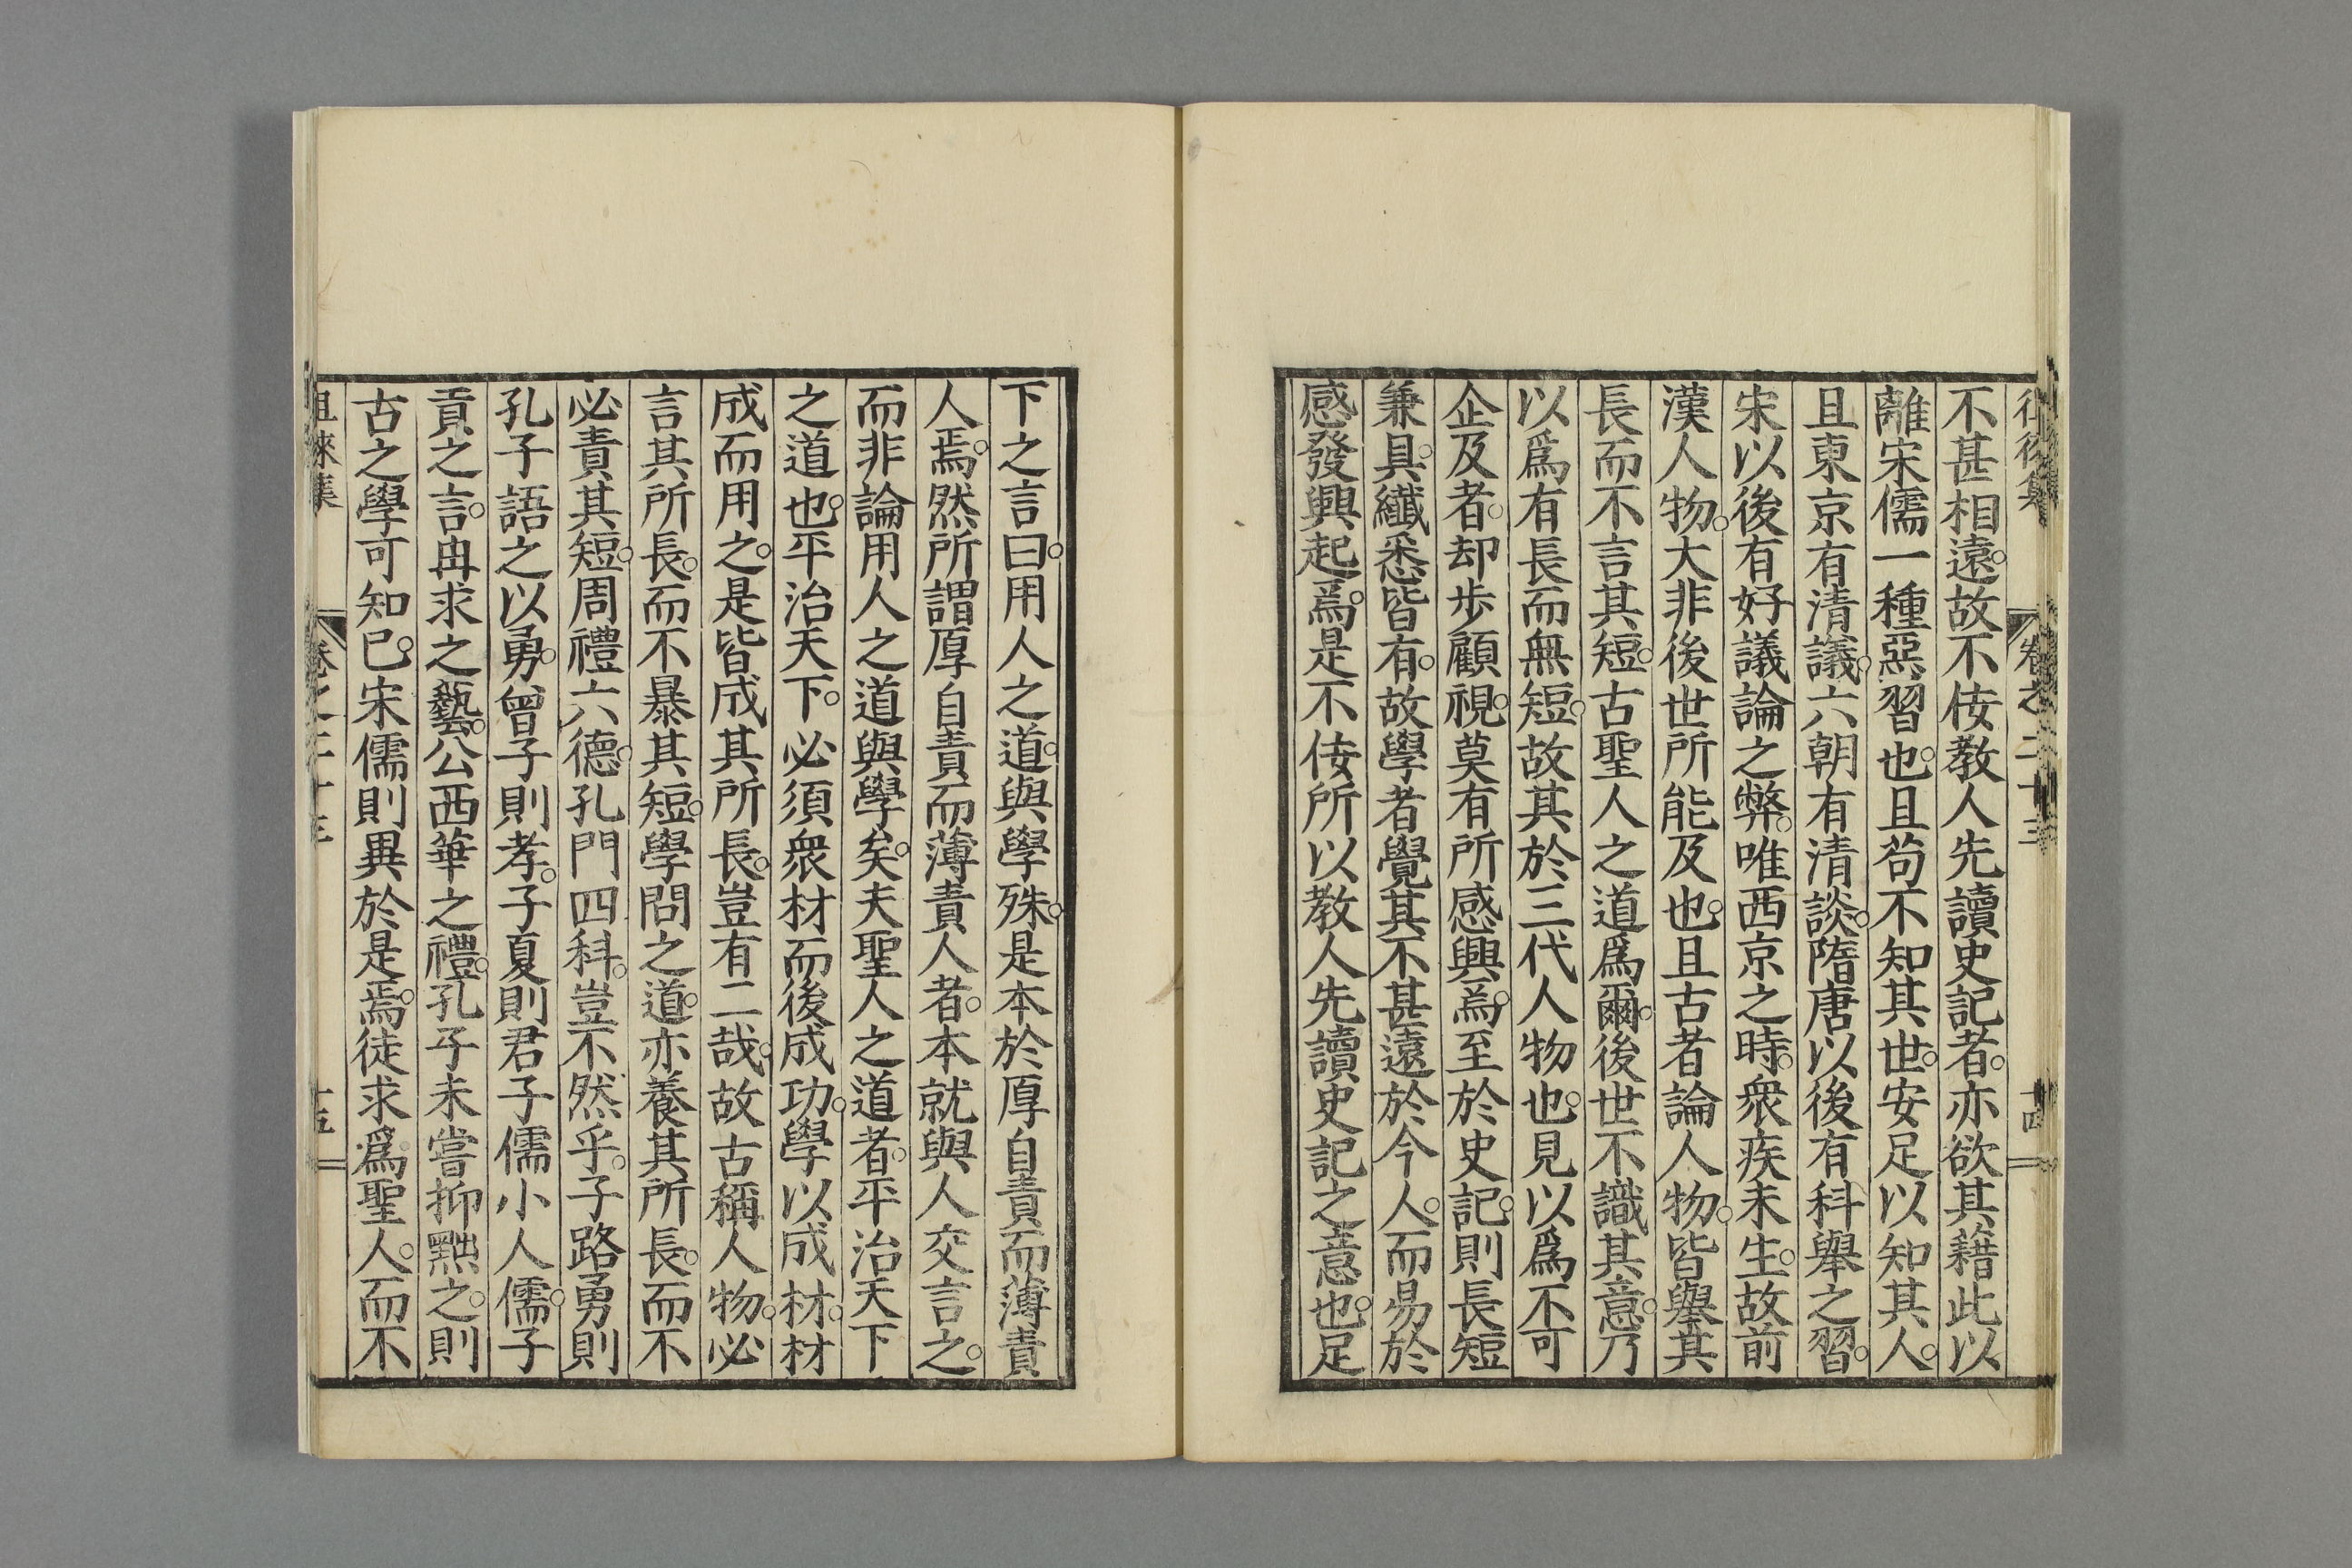 不甚相遠。故不佞教人先讀史記者。亦欲其藉此以
離宋儒一種惡習也。且苟不知其世。安足以知其人。
且東京有清議。六朝有清談。隋唐以後有科舉之習。
宋以後有好議論之弊。唯西京之時。衆疾未生。故前
漢人物。大非後世所能及也。且古者論人物。皆舉其
長而不言其短。古聖人之道爲爾。後世不識其意。乃
以爲有長而無短。故其於三代人物也。見以爲不可
企及者。却歩顧視。莫有所感興焉。至於史記。則長短
兼具。纖悉皆有。故學者覺其不甚遠於今人。而易於
感發興起焉。是不佞所以教人先讀史記之意也。足
卷之二十三
十四
下之言曰。用人之道。與學殊。是本於厚自責而薄責
人焉。然所謂厚自責而薄責人者。本就與人交言之。
而非論用人之道與學矣。夫聖人之道者。平治天下
之道也。平治天下。必須衆材而後成功。學以成材。材
成而用之。是皆成其所長。豈有二哉。故古稱人物。必
言其所長。而不暴其短。學問之道。亦養其所長。而不
必責其短。周禮六德。孔門四科。豈不然乎。子路勇則
孔子語之以勇。曾子則孝。子夏則君子儒小人儒。子
貢之言。冉求之藝。公西華之禮。孔子未嘗抑黜之。則
古之學可知已。宋儒則異於是焉。徒求爲聖人。而不
徂徠集
卷之二十三
十五